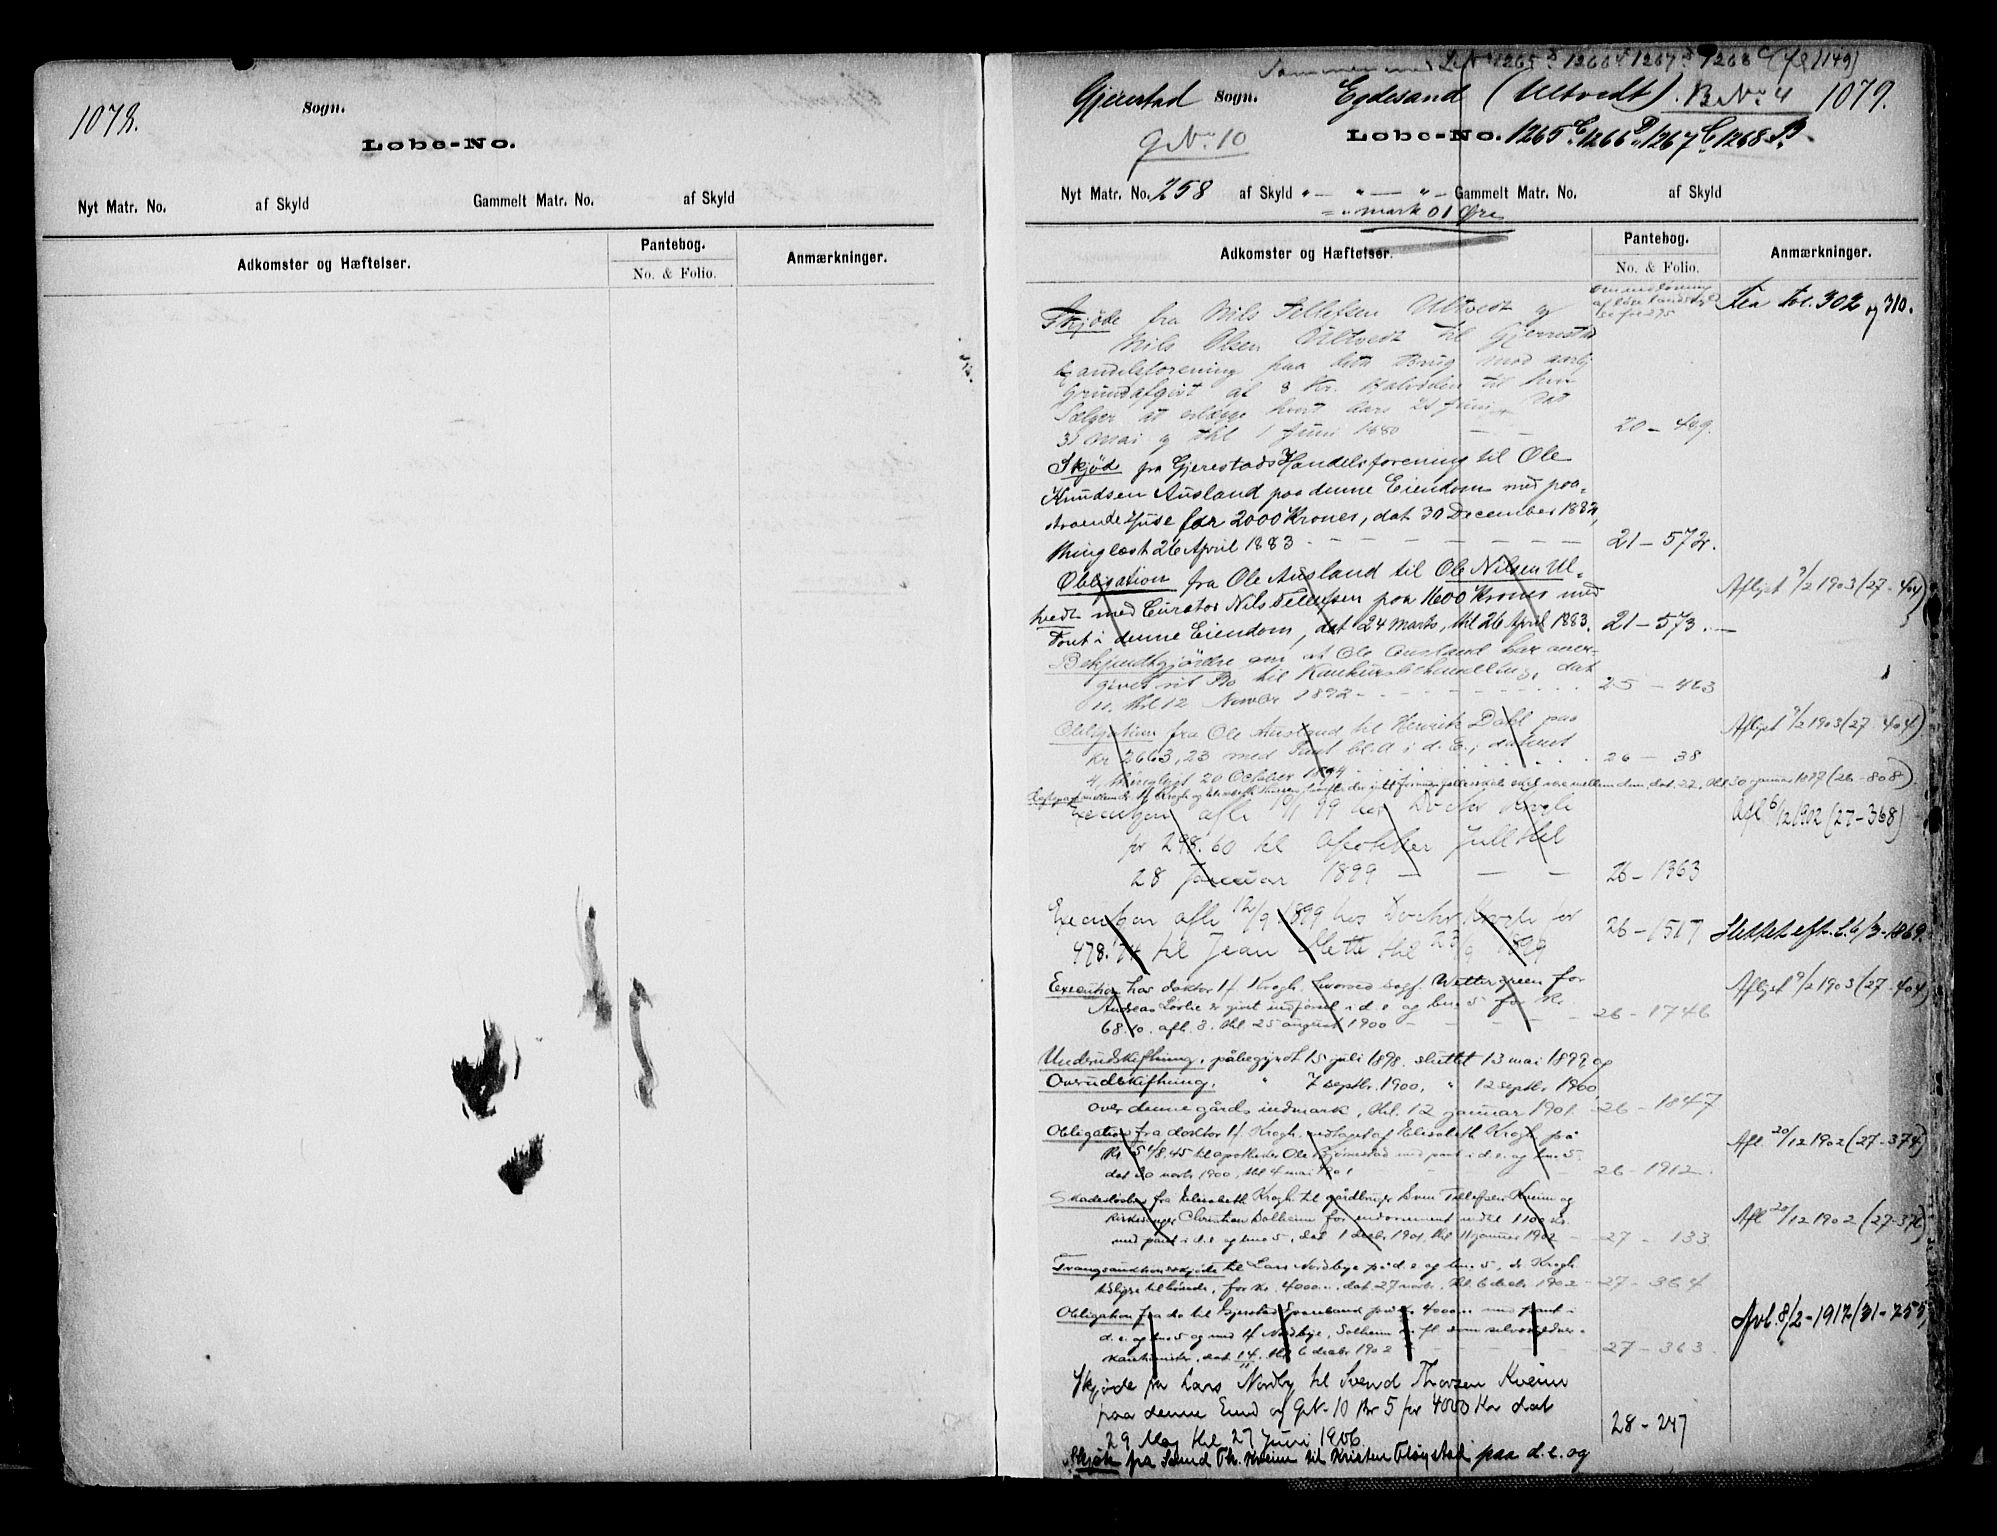 1078.
Sogn.
Løbe-No.
Nyt Matr. No. af Skyld Gammelt Matr. No. af Skyld
Adkomster og Hæftelser.
Pantebog.
No. & Folio.
Anmærkninger.
1265 1266 1267 1268 (149)
Gjerestad Sogn. Egdesand (Ultvedt). B No. 4 1079.
G No. 10
Løbe-No. 1265 C, 1266 D, 1267 C, 1268 B.
Nyt Matr. No. 258 af Skyld " — " — " — Gammelt Matr. No. af Skyld
mark 01 Øre
Adkomster og Hæftelser.
Pantebog.
No. & Folio.
Anmærkninger.
Fra Fol. 302 og 310.
Skjøde fra Nils Tellefsen Ultvedt og
Nils Olsen Ultvedt til Gjerrestad
Handelsforening paa dette Brug mod aarlig
Grundafgift af 8 Kr. Halvdelen til hver
Sælger at erlægge hvert Aars 24 Juni dat
31 Mai og thl 1 Juni 1880 — — 20 – 469.
Skjøde fra Gjerestads Handelsforening til Ole
Knudsen Ausland paa denne Eiendom med paa-
staaende Huse for 2000 Kroner, dat 30 December 1882,
thinglæst 26 April 1883 - - - - - 21 – 572.
Obligation fra Ole Ausland til Ole Nilsen Ul-
tvedt med Curator Nils Tellefsen paa 1600 Kroner med
Pant i denne Eiendom, dat 24 Marts, thl 26 April 1883. 21 – 573. —
Aflyst 9/2 1903 (27-404)
Bekjendtgjørelse om at Ole Ausland har over-
givet sit Bo til Konkursbehandling, dat
11, thl 12 Novbr 1892 - - - - 25 – 463
Obligation fra Ole Ausland til Henrik Dahl paa
kr 2663,23 med Pant bl.a. i d. E.; dateret
4, thinglyst 20 October 1894 26 – 38
Aflyst 9/2 1903 (27-404)
mellem dem, dat. 22, thl 30 januar 1897 (26-808)
Execution afh 10/1 99 hos Doctor Krogh
for 298.60 til Apotheker Jull thl
28 Januar 1899 — — — 26 – 1363
Afl 6/12 1902 (27-368)
Execution afh 12/9 1899 hos Doctor Krogh for
478.74 til Jean Mette thl 23/9 1899
26 – 1517 Slettet eft. L. 6/3-1869.
Execution hos doktor H Krogh, hvorved sagf. Wettergreen for
Andreas Lovlie er givet indførsel i d. e og bno. 5 for kr.
68.10. afh. 3. thl 25 august 1900 — — — 26 – 1746
Aflyst 9/2 1903 (27-404)
Underudskiftning, påbegyndt 15 juli 1898. sluttet 13 mai 1899 og
Overudskiftning. " 7 septbr. 1900, " 12 septbr 1900
over denne gårds indmark, thl. 12 januar 1901. 26 – 1847
Obligation fra doktor H. Krogh, vedtaget af Elisabeth Krogh på
kr 518.45 til apotheker Ole Bjørnestad med pant i d. e. og bno 5.
dat 20 novbr 1900, thl 4 mai 1901 26 – 1912.
Afl. 20/12 1902 (27-374)
Skadesløsbrev fra Elisabeth Krogh til gårdbruger Sven Tellefsen Kveim og
kirkesanger Christian Dalheim for endossement indtil 1100 kr.
med pant i d. e og bno 5. dat 1 decbr 1901, thl 11 januar 1902 — 27 – 133
Afl 20/12 1902 (27-376)
Tvangsauktionsskjøde til Lars Nordbye på d. e og bno. 5, dr Krogh
tidligere tilhørende, for kr. 4000.-. dat 27 novbr. thl 6 decbr 1902 – 27 – 364
Obligation fra do til Gjerstad Sparebank på kr. 4000.- med pant i
d. e. og bno 5 og med H Nordbye, Solheim m. fl som selvskyldner-
kautionister, dat 14. thl 6 decbr 1902 27 – 363
Avl. 8/2-1917 (31-255)
Skjøde fra Lars Nordby til Svend Thorsen Kveim
paa denne Eiend og G.No. 10 Br 5 for 4000 Kr dat
29 Maj thl 27 Juni 1906 28 – 247
Skjøte fra Svend Th. Kveim til Kristen Fløystad paa d. e. og